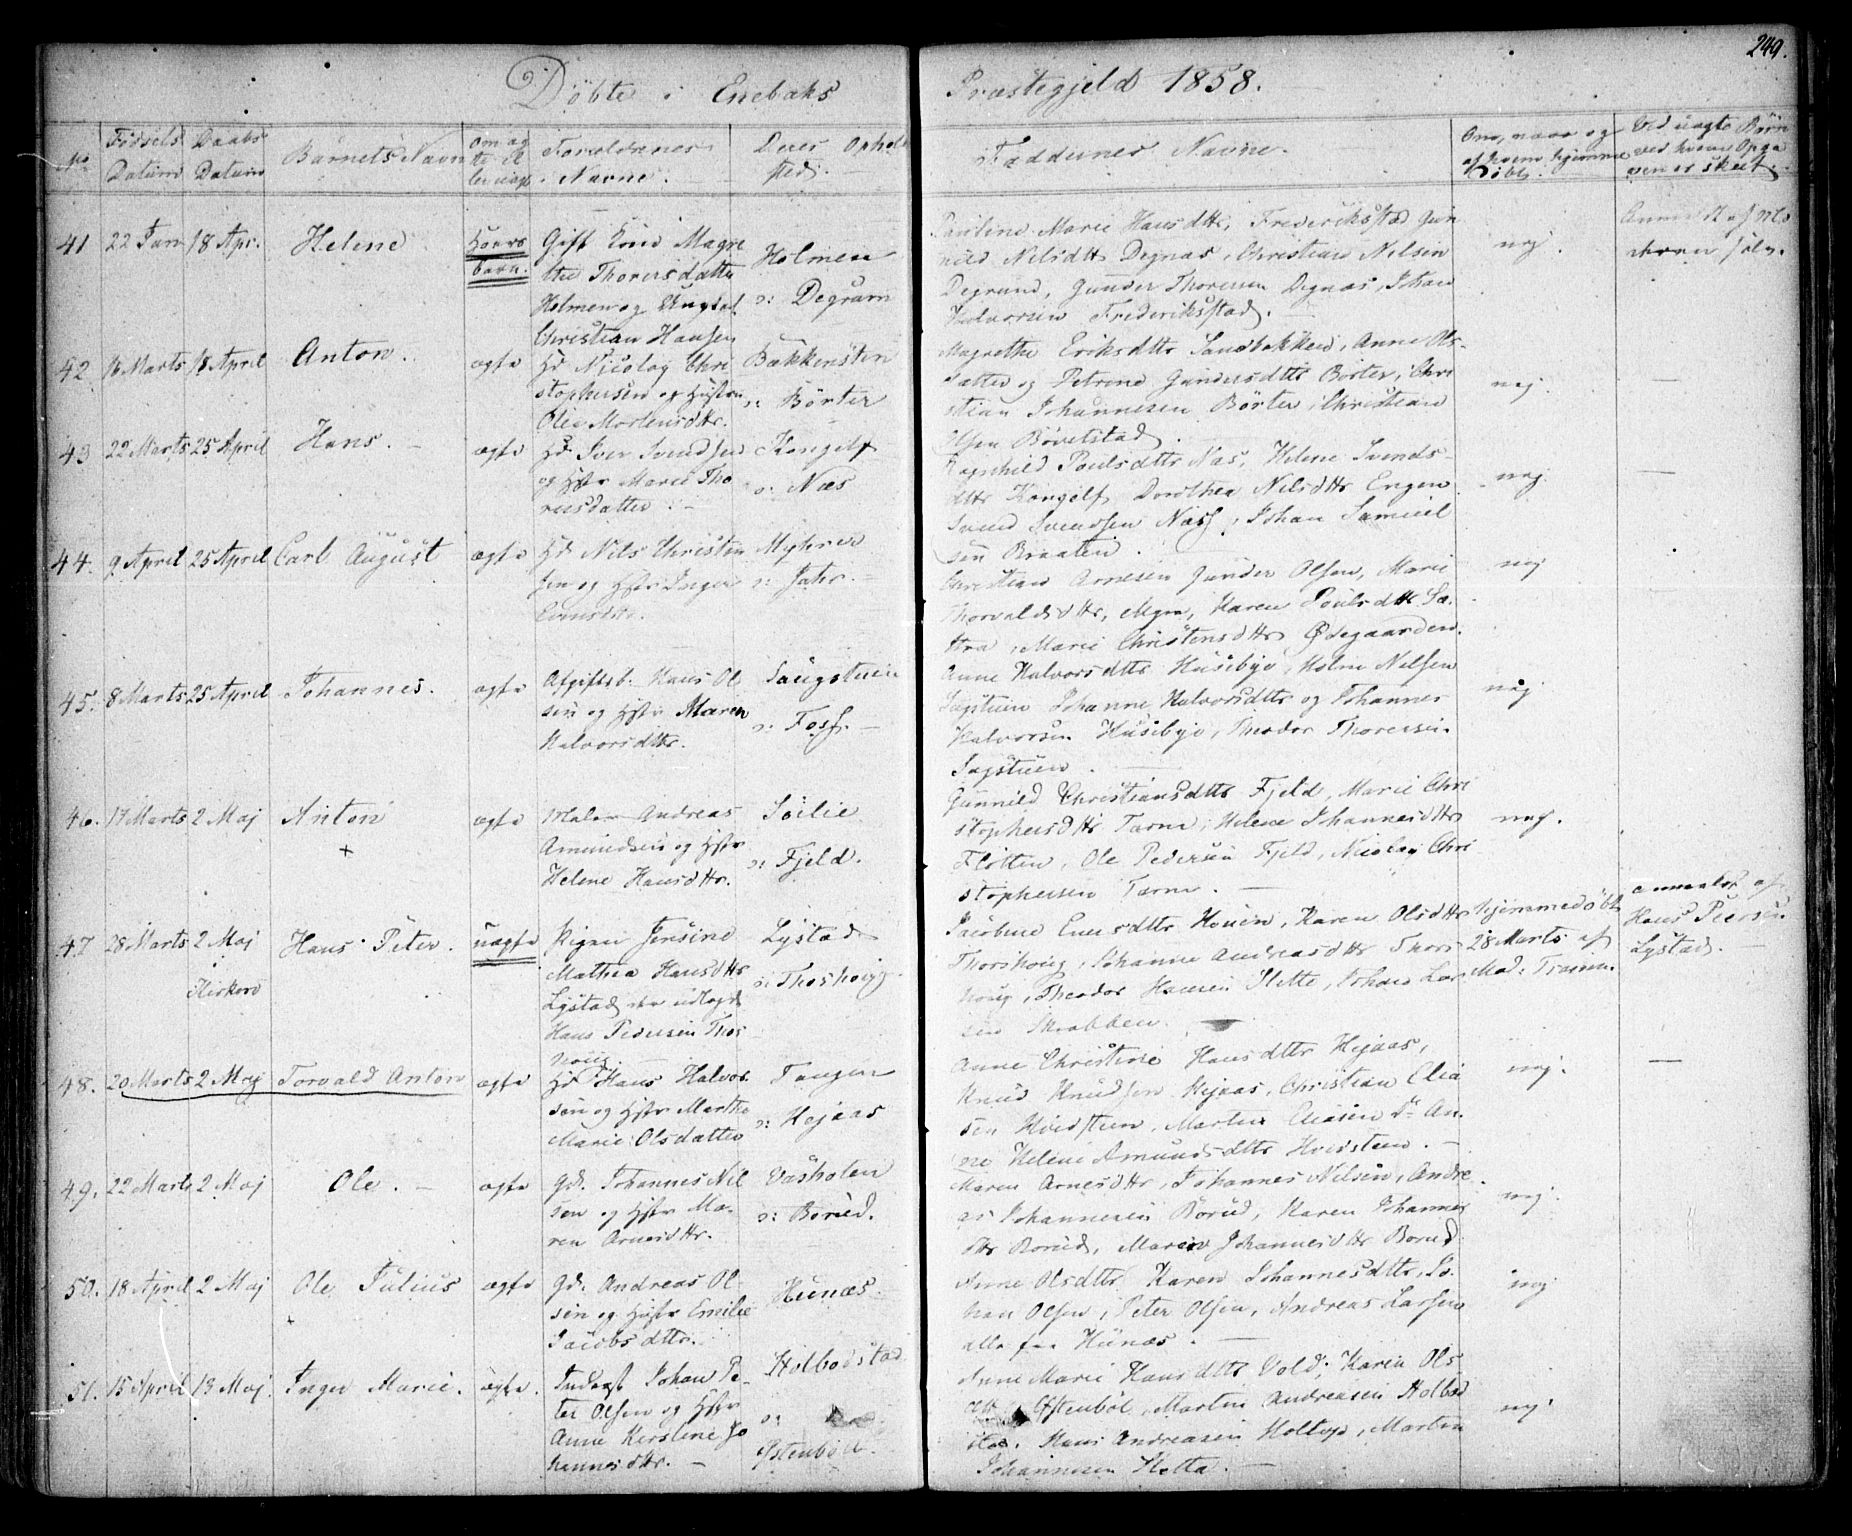 249.
Döbte i Enebaks Præstegjeld 1858.
No Födsels Datum Daabs Datum Barnets Navn om ægte el ler uægte Forældrenes Navne. Deres Opholds sted. Faddernes Navne. Om, naar og af hvem hjemme döbt. Ved uægte Börn ved hvem Opga ven er skeet.
41 22 Jan 18 Apr. Helene Hoers barn.
Gift Kone Magre
the Thorersdatter
Holmen og Ungkal
Christian Hansen
Holmen
o: Degrum
Pauline Marie Hansdttr, Frederikstad Gun
nild Nilsdttr Degnæs, Christian Nilsen
Degrund, Gunder Thoresen Degnæs, Johan
Halvorsen Frederiksstad.
nej.
42 16 Marts 18 April Anton. ægte
Hd Nicolay Chri
stophersen og Hustru
Olia Mortensdttr.
Bækkensten
o: Börter
Magrethe Eriksdttr Sandbakken, Anne Ols
datter og Petrine Gundersdttr Börter, Chri
stian Johannesen Börter, Christian
Olsen Bövelstad.
nej. —
43 22 Marts 25 April Hans. — ægte
Hd Iver Svendsen
og Hstr Marie Tho
resdatter. —
Kongelf
o: Næs
Ragnhild Poulsdttr Næs, Helene Svends-
dttr Kongelf, Dorothea Nilsdttr Engen
Svend Svendsen Næss, Johan Samuel
sen Braaten.
nej. —
44. 9 April 25 April Carl August ægte
Hd Nils Christen
sen og Hstr Inger
Myhrer
o: Jahr. —
Christian Arnesen Gunder Olsen, Marie
Thorvaldsdttr, Myra, Karen Poulsdttr Sæ
tra, Marie Christensdttr Ødegaarden.
nej
45. 8 Marts 25 April Johannes. ægte
Afgiftsb. Hans Ol
sen og Hstr Maren
Halvorsdttr.
Saugstuen
o: Foss. —
Anne Halvorsdttr Huseby, Helene Nilsen
Sagstuen Johanne Halvorsdttr og Johannes
Halvorsen Huseby, Theodor Thoresen
Sagstuen. —
nej
46. 17 Marts 2 Maj Anton + ægte
Maler Andreas
Amundsen og Hstr
Helene Hansdttr.
Söilie
o: Fjeld.
Gunnild Christiansdttr Fjeld, Marie Chri
stophersdttr Tarne, Helene Johannesdttr
Fløtten, Ole Pedersen Fjeld, Nicolay Chri
stophersen Tarne. —
nej.
47 28 Marts 2 Maj i Kirken Hans Peter. uægte
Pigen Jensine
Mathea Hansdttr
Lystad, der udlagde
Hans Pedersen Thos
houg.
Lystad
o: Thoshoug.
Jacobine Eversdttr Houen, Karen Olsdttr
Thorshoug, Johanne Andreasdttr Thors
houg, Theodor Hansen Slette, Johan Lar
sen Skrabben.
Hjemmedöbt
28 Marts af
anmeldt af
Hans Pedersen
Lystad.
48. 20 Marts 2 Maj Torvald Anton ægte
Hd Hans Halvor
sen og Hstr Marthe
Marie Olsdatter
Tangen
o: Hejaas
Anne Christine Hansdttr Hejaas,
Knud Knudsen Hejaas, Christian Elia
sen Hvidsteen, Martin Eliasen do An
ne Helene Amundsdttr Hvidsteen. —
nej. —
49. 22 Marts 2 Maj Ole. — ægte
Gd. Johannes Nil
sen og Hstr Ma
ren Arnesdttr.
Vasholen
o: Börud.
Maren Arnesdttr, Johannes Nilsen, Andre
as Johannesen Börud, Karen Johannes
dttr Börud, Maren Johannesdttr Börud
nej.
50. 18 April 2 Maj Ole Julius + ægte
Gd. Andreas Ol
sen og Hustr Emilie
Jacobsdttr.
Hunæs.
Anne Olsdttr Karen Johannesdttr, Jo
han Olsen, Peter Olsen, Andreas Larsen
alle fra Hunæs. —
nej
51. 15 April 13 Maj. Inger Marie. ægte.
Inderst Johan Pe
ter Olsen og Hstr
Anne Kerstine Jo
hannesdttr. —
Holbödstad
o:
Østenböl.
Anne Marie Hansdttr Vold, Karen Ols
dttr Østenböl, Martin Andreasen Holböd
stad, Hans Andreasen Holtop, Martin
Johannesen Hotta. —
nej.